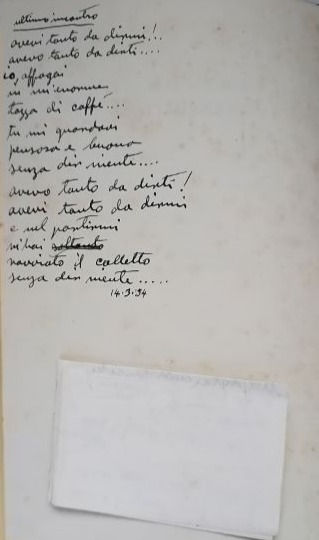 ultimo incontro
avevi tanto da dirmi!..
avevo tanto da dirti....
io, affogai
in un'enorme
tazza di caffé....
tu mi guardavi
pensosa e buona
senza dir niente....
avevo tanto da dirti!
avevi tanto da dirmi
e nel partirmi
mi hai soltanto
ravviato il colletto
senza dir niente.....
14.3.94